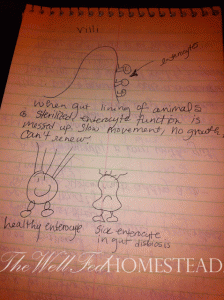 Villi
enterocytes
When gut lining of animals
is sterilized, enterocyte function is
messed up. Slow movement, no growth.
Can't renew.
healthy enterocyte
Sick enterocyte
in gut disbiosis
The Well Fed HOMESTEAD